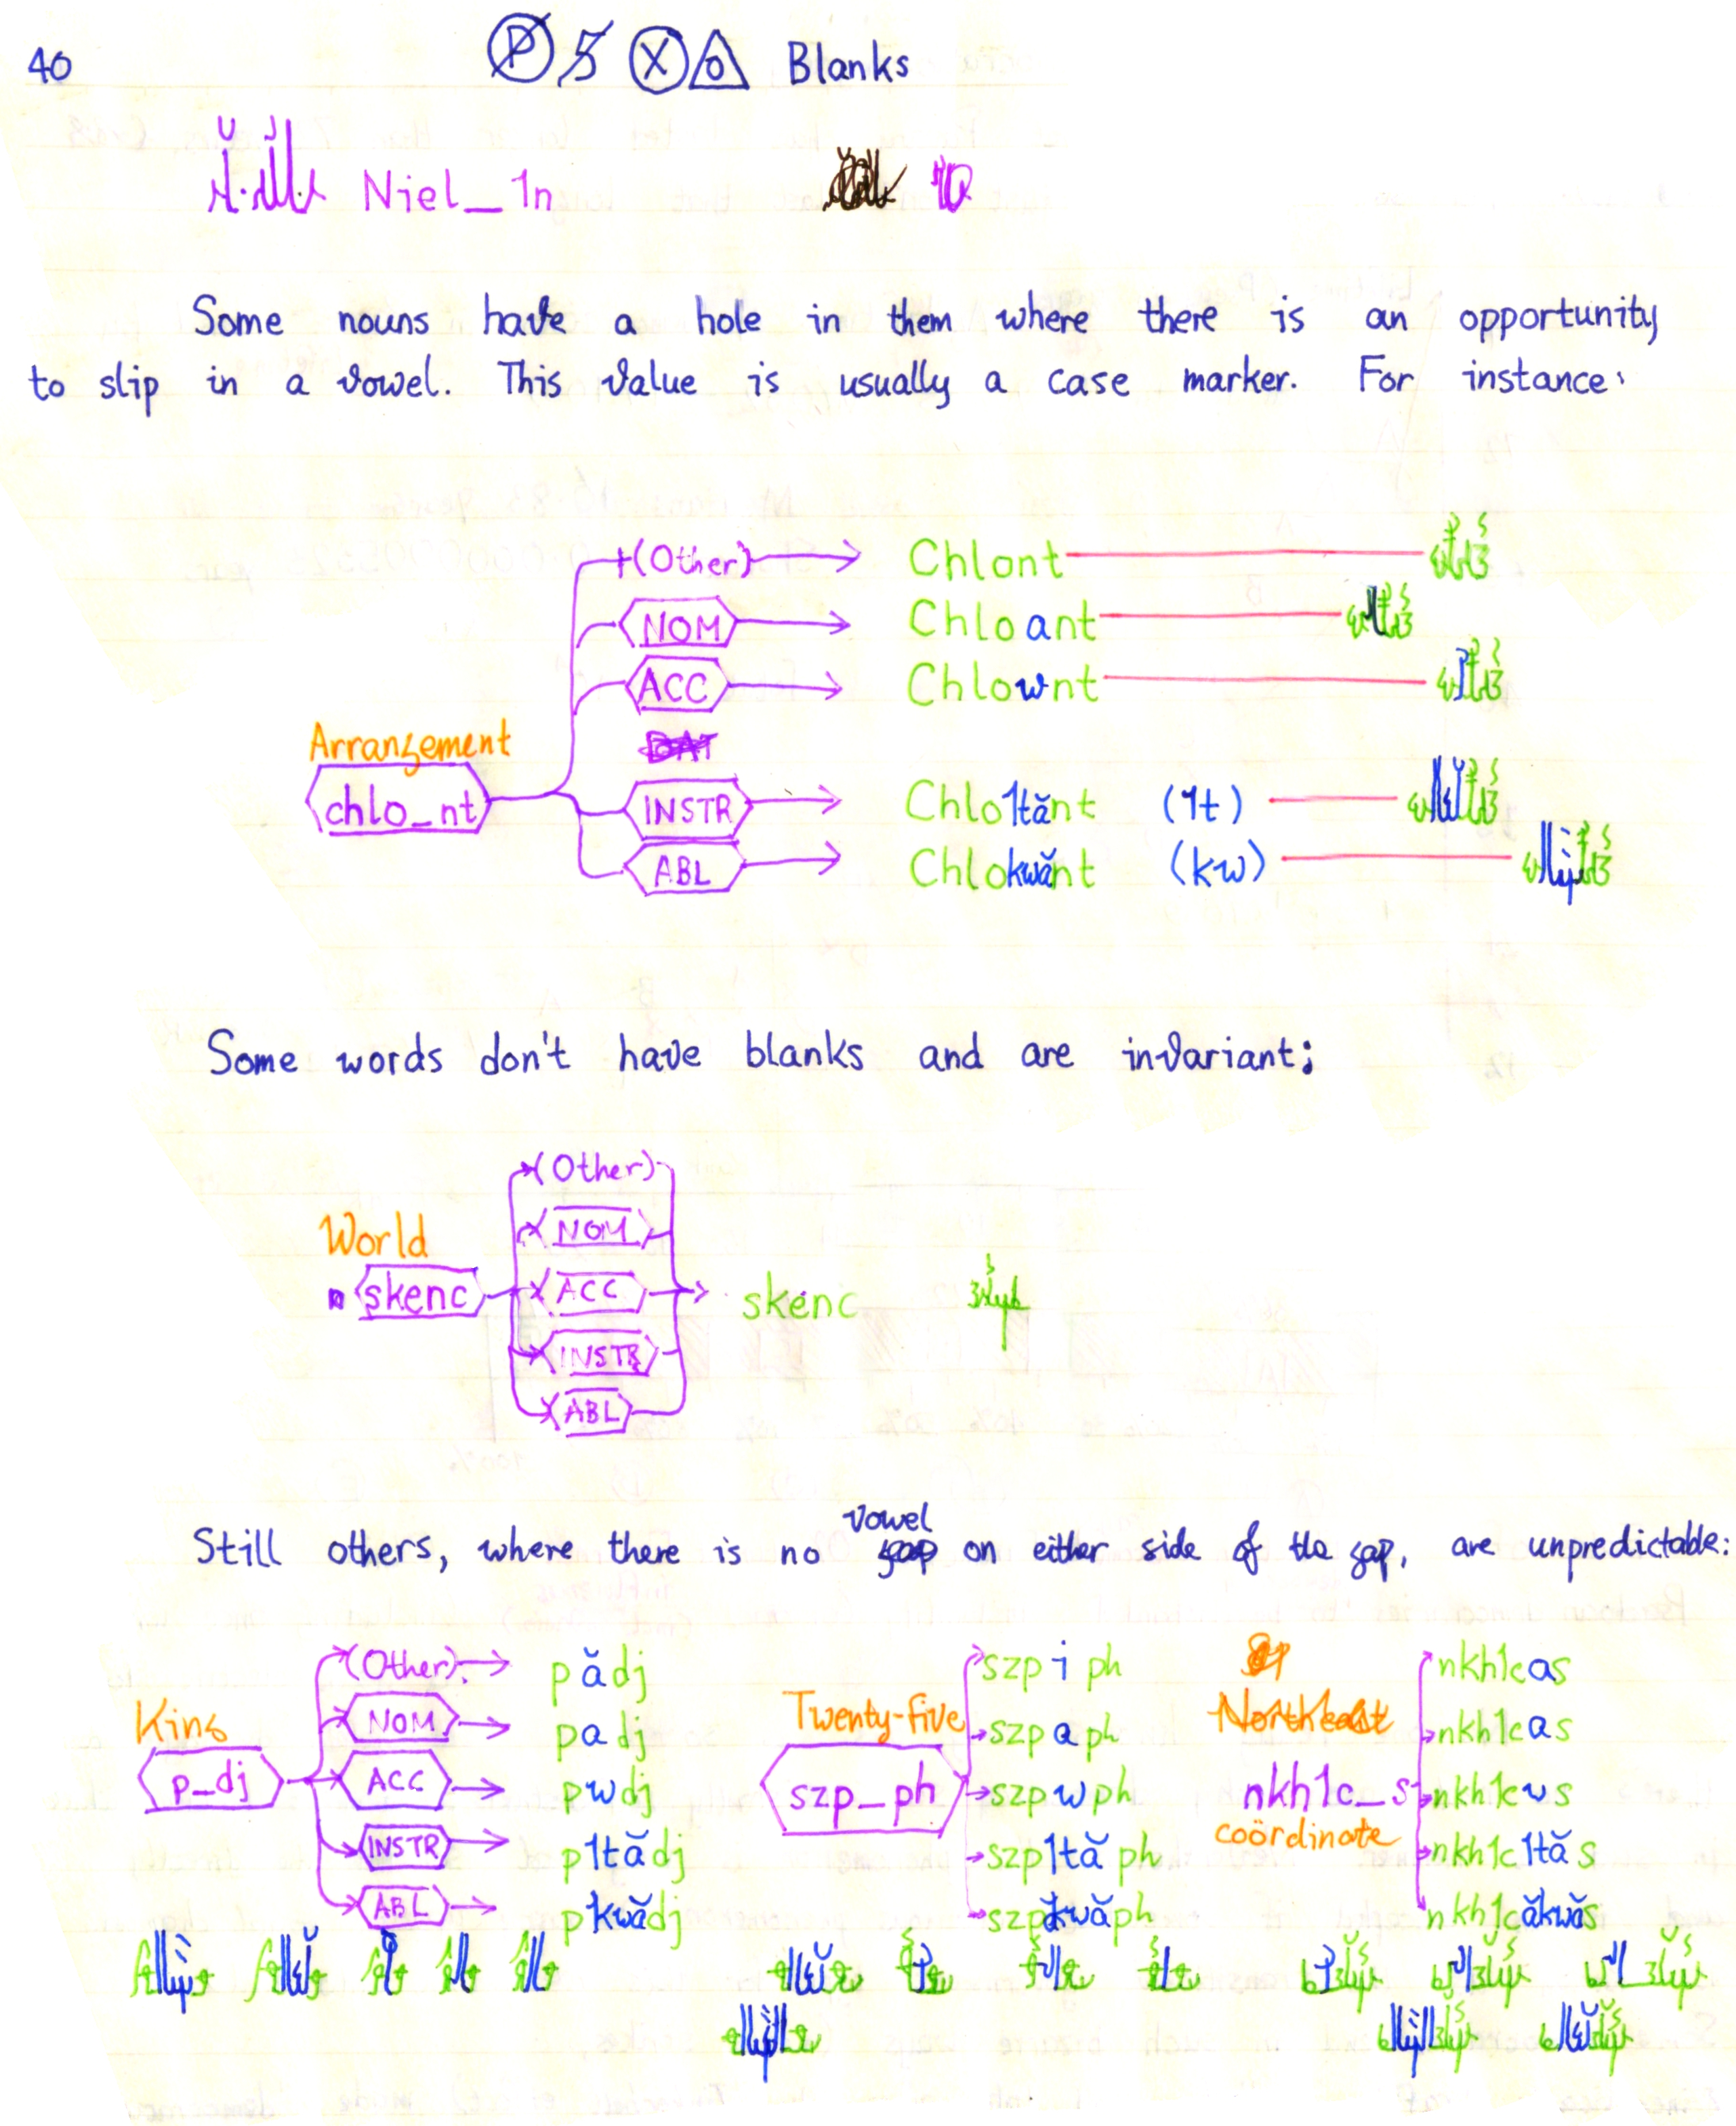 40 Blanks
Niel_1n
Some nouns have a hole in them where there is an opportunity
to slip in a vowel. This value is usually a case marker. For instance:
(Other) Chlont
NOM Chloant
ACC Chlownt
Arrangement
chlo_nt
INSTR Chlo1tănt (1t)
ABL Chlokwănt (kw)
Some words don't have blanks and are invariant;
(Other)
World
NOM
skenc
ACC
skenc
INSTR
ABL
Still others, where there is no vowel on either side of the gap, are unpredictable:
King
p_dj
(Other) pădj
NOM padj
ACC pwdj
INSTR p1tădj
ABL pkwădj
Twenty-five
szp_ph
szpiph
szpaph
szpwph
szp1tăph
szpkwăph
nkh1c_s
coördinate
nkh1cas
nkh1cas
nkh1cws
nkh1c1tăs
nkh1căkwăs